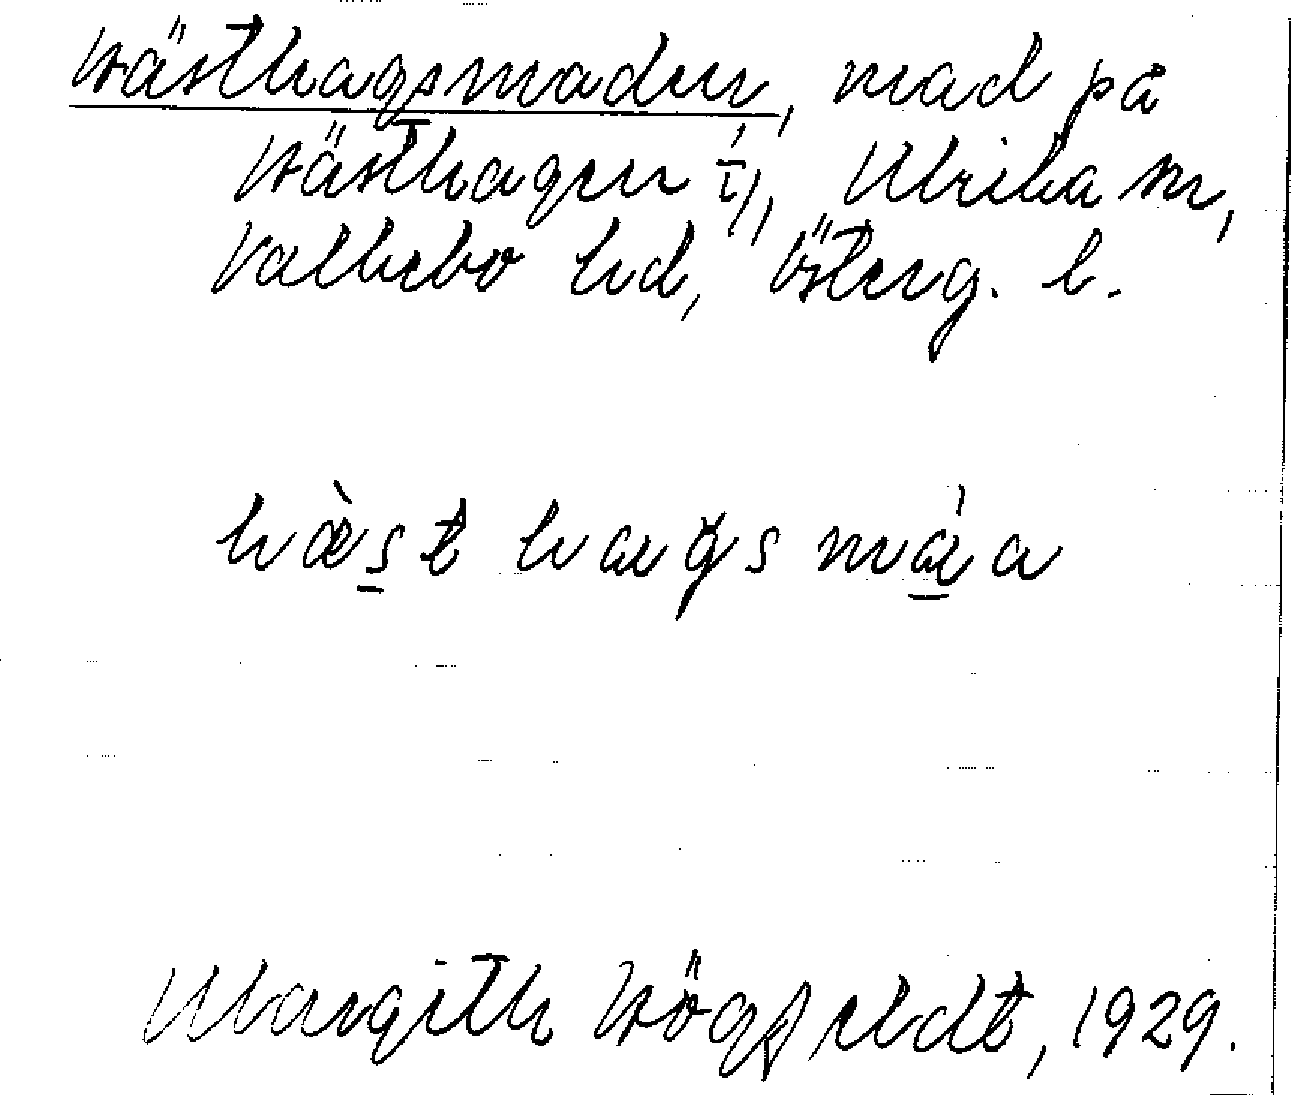 Hästhagsmaden, mad på
Hästhagen 1/1, Ulrika sn,
Valkebo hd, Österg. l.
hæ̀st hagsmáa
Margith Högfeldt, 1929.